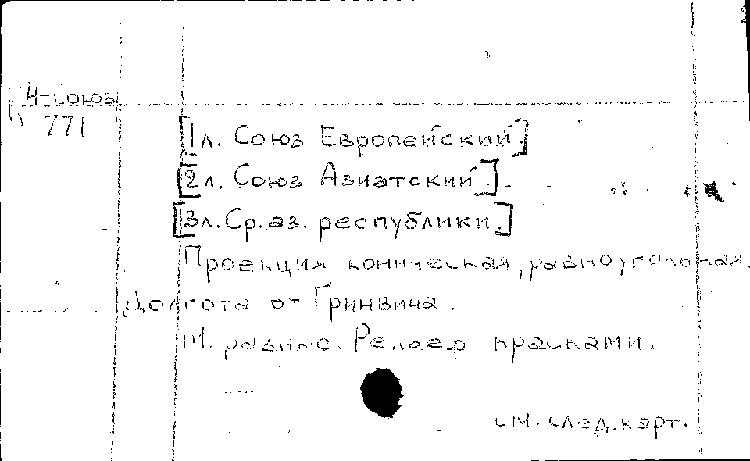 Н-Союз
771
[1л. Союз Европейский.]
[2л. Союз Азиатский.]
[3л. Ср.аз. республики.]
Проекция коническая, равноугольная.
Долгота от Гринвича.
М. разные. Рельеф красками.
см. след. карт.